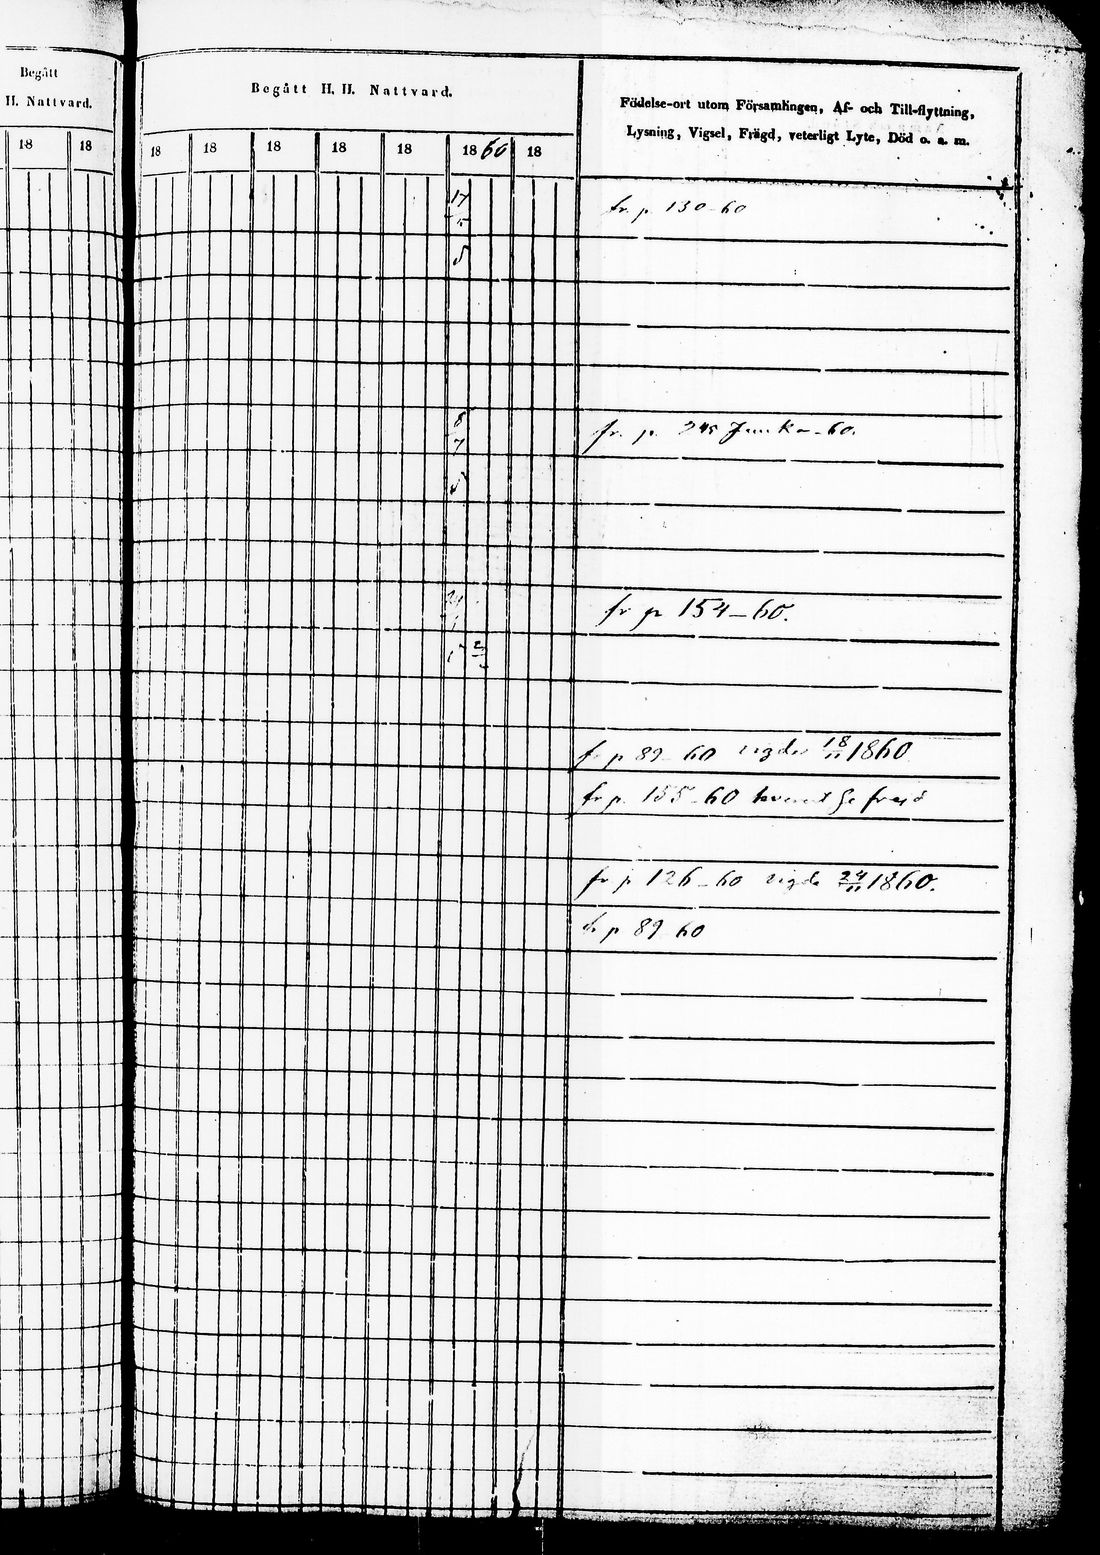 Begått
H. Nattvard.
18 18
Begått H. H. Nattvard.
18 18 18 18 18 1860 18
Födelse-ort utom Församlingen, Af- och Till-flyttning,
Lysning, Vigsel, Frägd, veterligt Lyte, Död o. a. m.
17
5
fr. p. 130-60
5
8
7
fr. p. 245 Junka-60.
5
fr p 154-60.
fr p 89-60 vigde 18/11 1860
fr p. 155-60
fr p 126-60 vigde 24/11 1860.
fr p 89 60